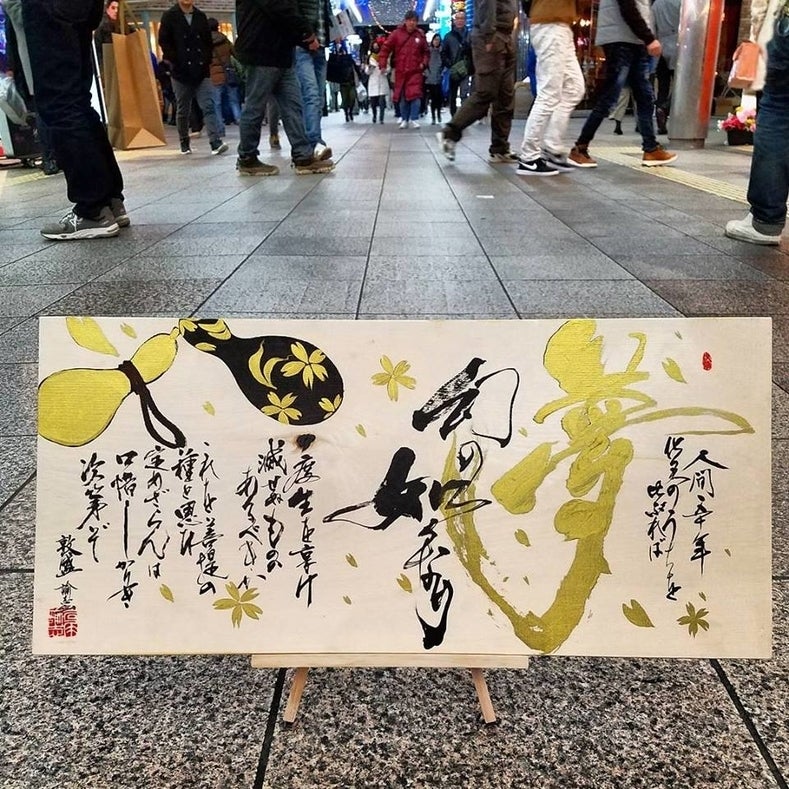 人間五十年
化天のうちを
比ぶれば
夢
幻の如くなり
一度生を享け
滅せぬもの
あるべきか
これを菩提の
種と思ひ
定めざらんは
口惜しかりき
次第ぞ
敦盛